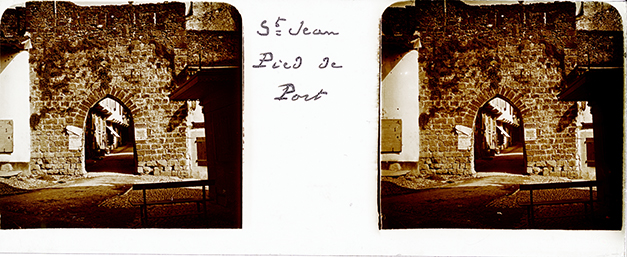 St Jean
Pied de
Port